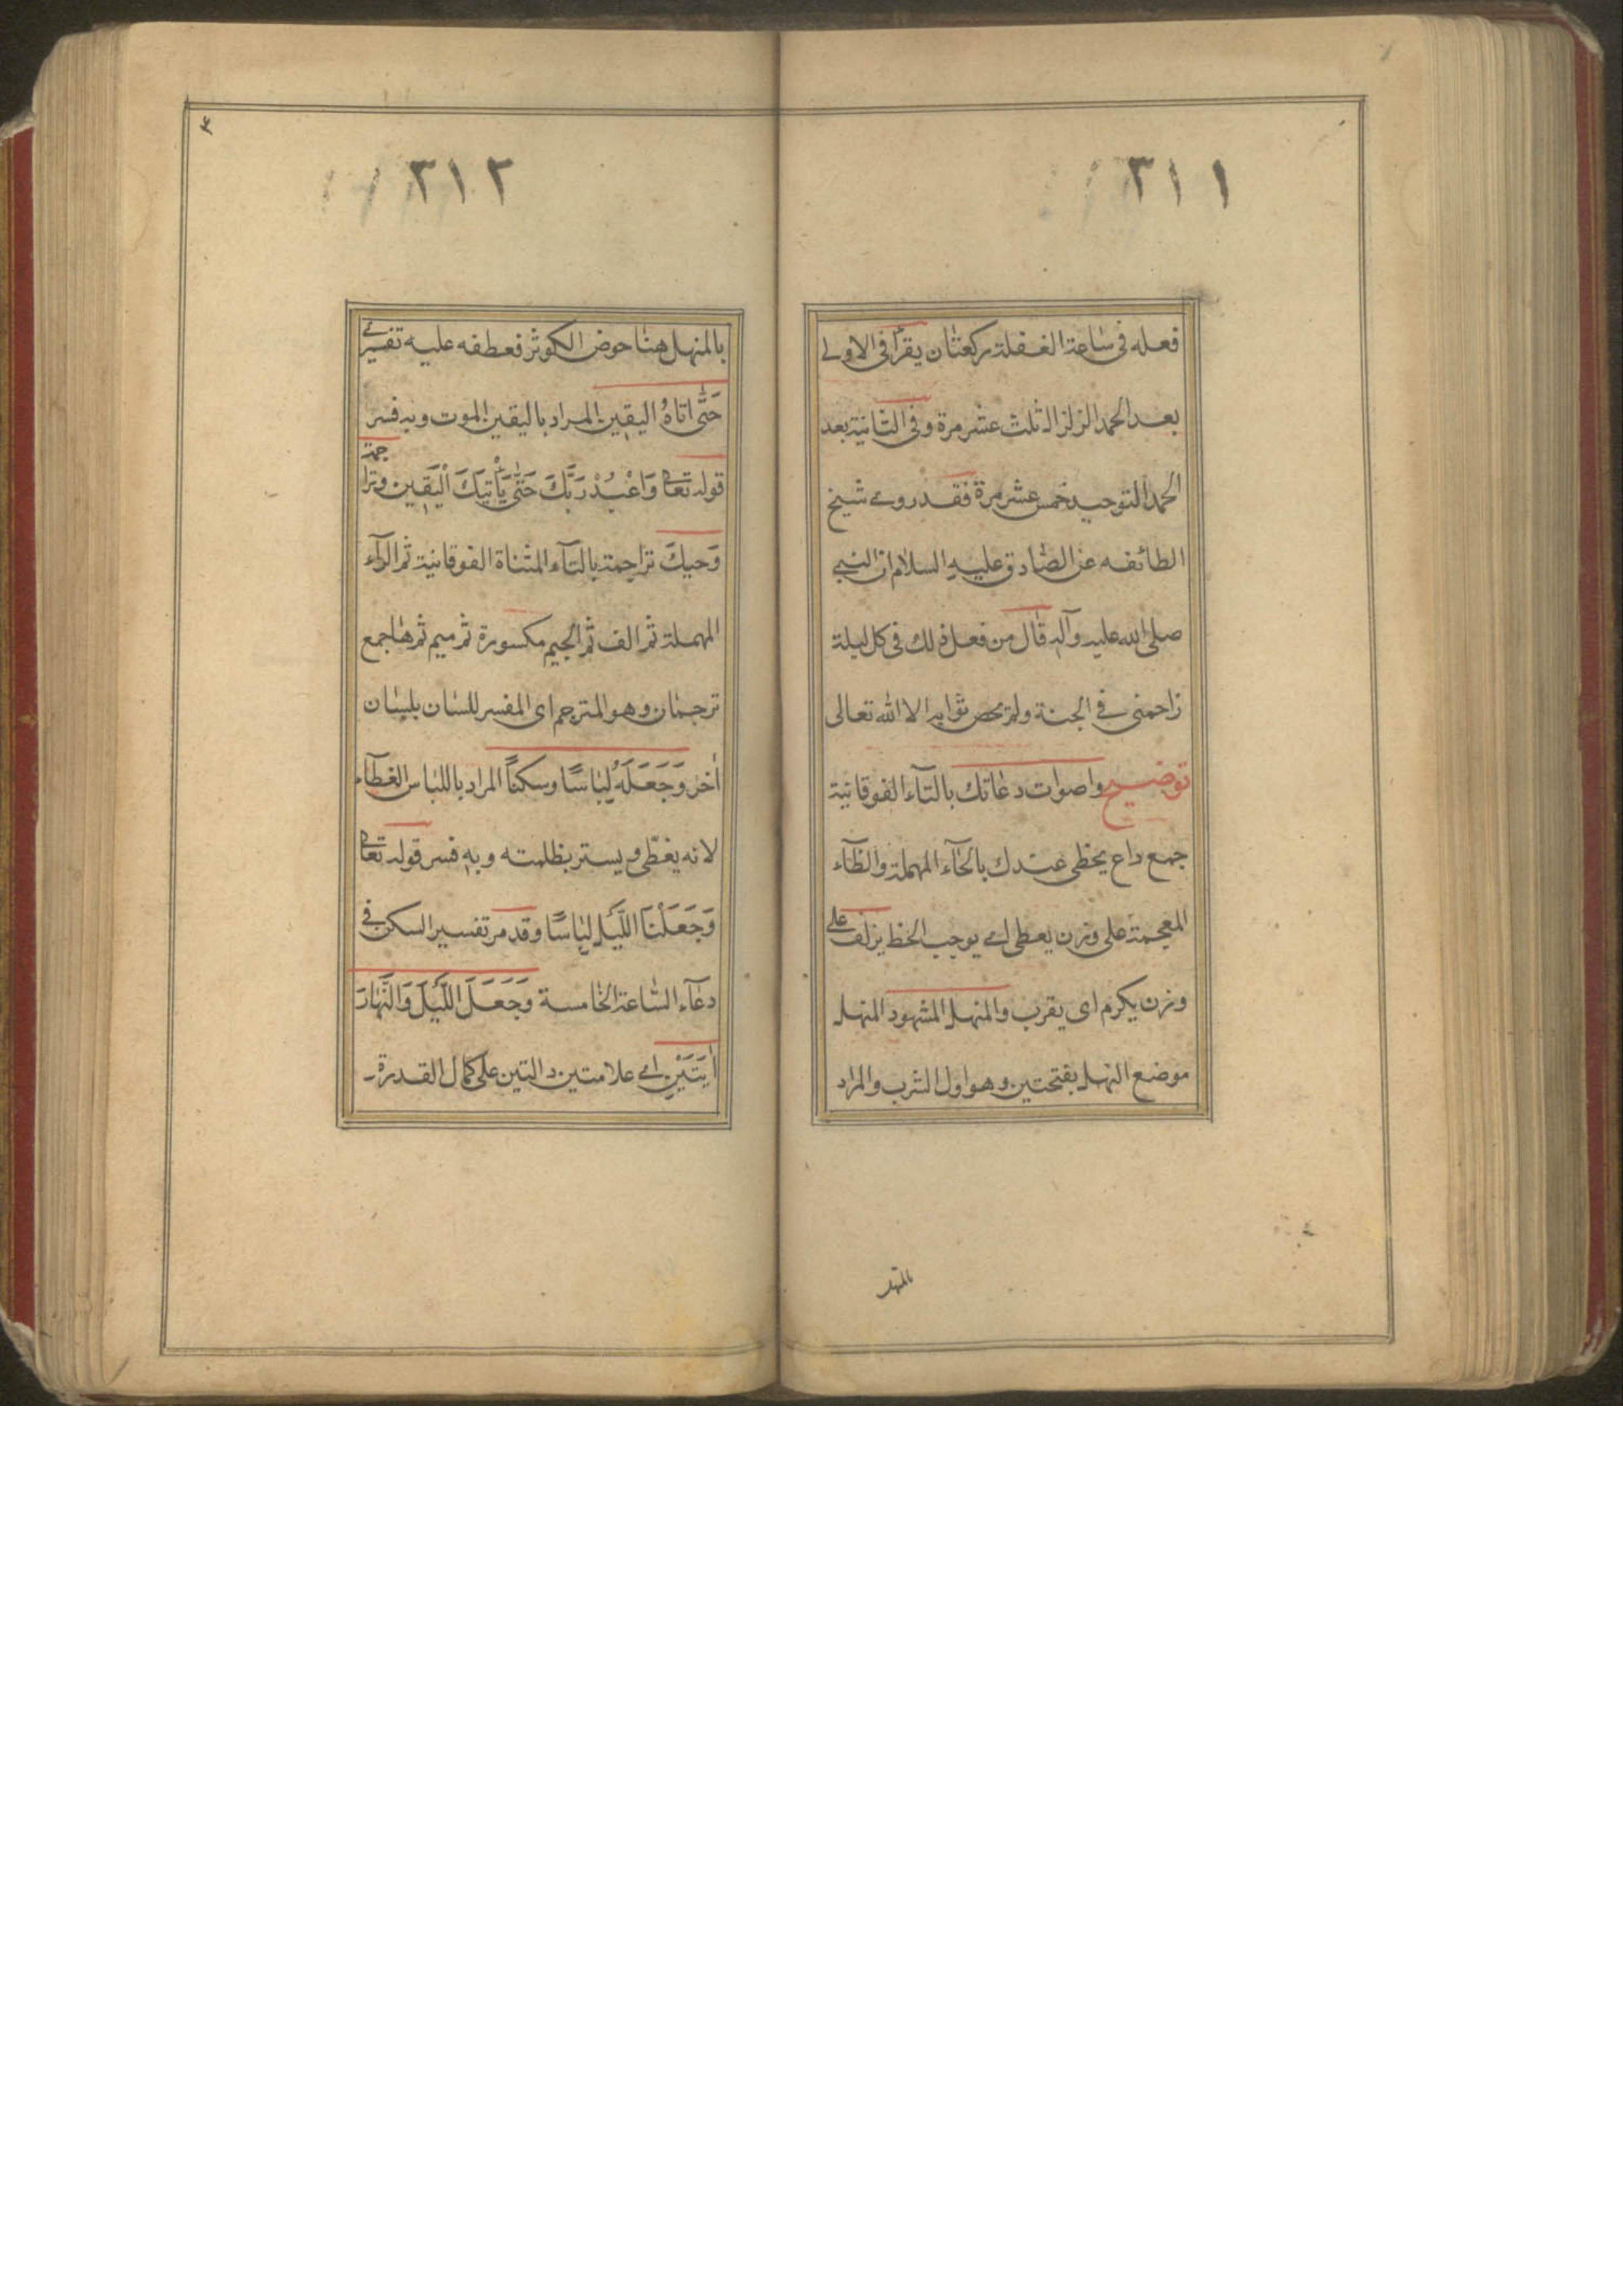 ٣١١
فعله في ساعة الغفلة ركعتان يقرأ في الاولى
بعد الحمد الزلزال ثلث عشر مرة وفي الثانية بعد
الحمد التوحيد خمس عشر مرة فقد روى شيخ
الطائفه عن الصادق عليه السلام ان النبي
صلى الله عليه وآله قال من فعل ذلك في كل ليلة
زاحمني في الجنة ولم يحص ثوابه الا الله تعالى
توضيح واصوات دعاتك بالتآء الفوقانية
جمع داع يحظى عندك بالحآء المهملة والظآء
المعجمة على وزن يعطى اي يوجب الحظ يزلف على
وزن يكرم اى يقرب والمنهل المشهود المنهل
موضع النهل بفتحتين وهو اول الشرب والمراد
بالمنهل
٣١٢
بالمنهل هنا حوض الكوثر فعطفه عليه تفسيري
حَتّى اتاهُ اليقين المراد باليقين الموت وبه فسر
قوله تعالى وَاعْبُدْ رَبَّكَ حَتّى يَأْتِيَكَ الْيَقِين وتراجمة
وَحيكَ تراجمة بالتآء المثناة الفوقانية ثم الرآء
المهملة ثم الف ثم الجيم مكسورة ثم ميم ثم ها جمع
ترجمان وهو المترجم اى المفسر للسان بلسان
اخر وَجَعَلَهُ لِبَاسًا وسكنًا المراد باللباس الغطآء
لانه يغطّى ويستر بظلمته وبه فسر قوله تعالى
وَجَعَلْنَا اللَّيْلَ لِبَاسًا وقد مر تفسير السكن في
دعآء الساعة الخامسة وَجَعَلَ اللَّيْلَ وَالنَّهارَ
ايَتَيْنِ اي علامتين دالتين على كمال القدرة